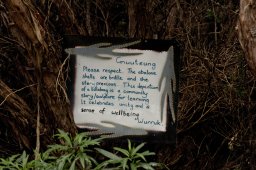 Gnuuteung
Please respect. The abalone
shells are brittle and the
story precious. This depiction
of a billabong is a community
story/sculpture for learning
It celebrates unity and a
sense of wellbeing
Wunruk.